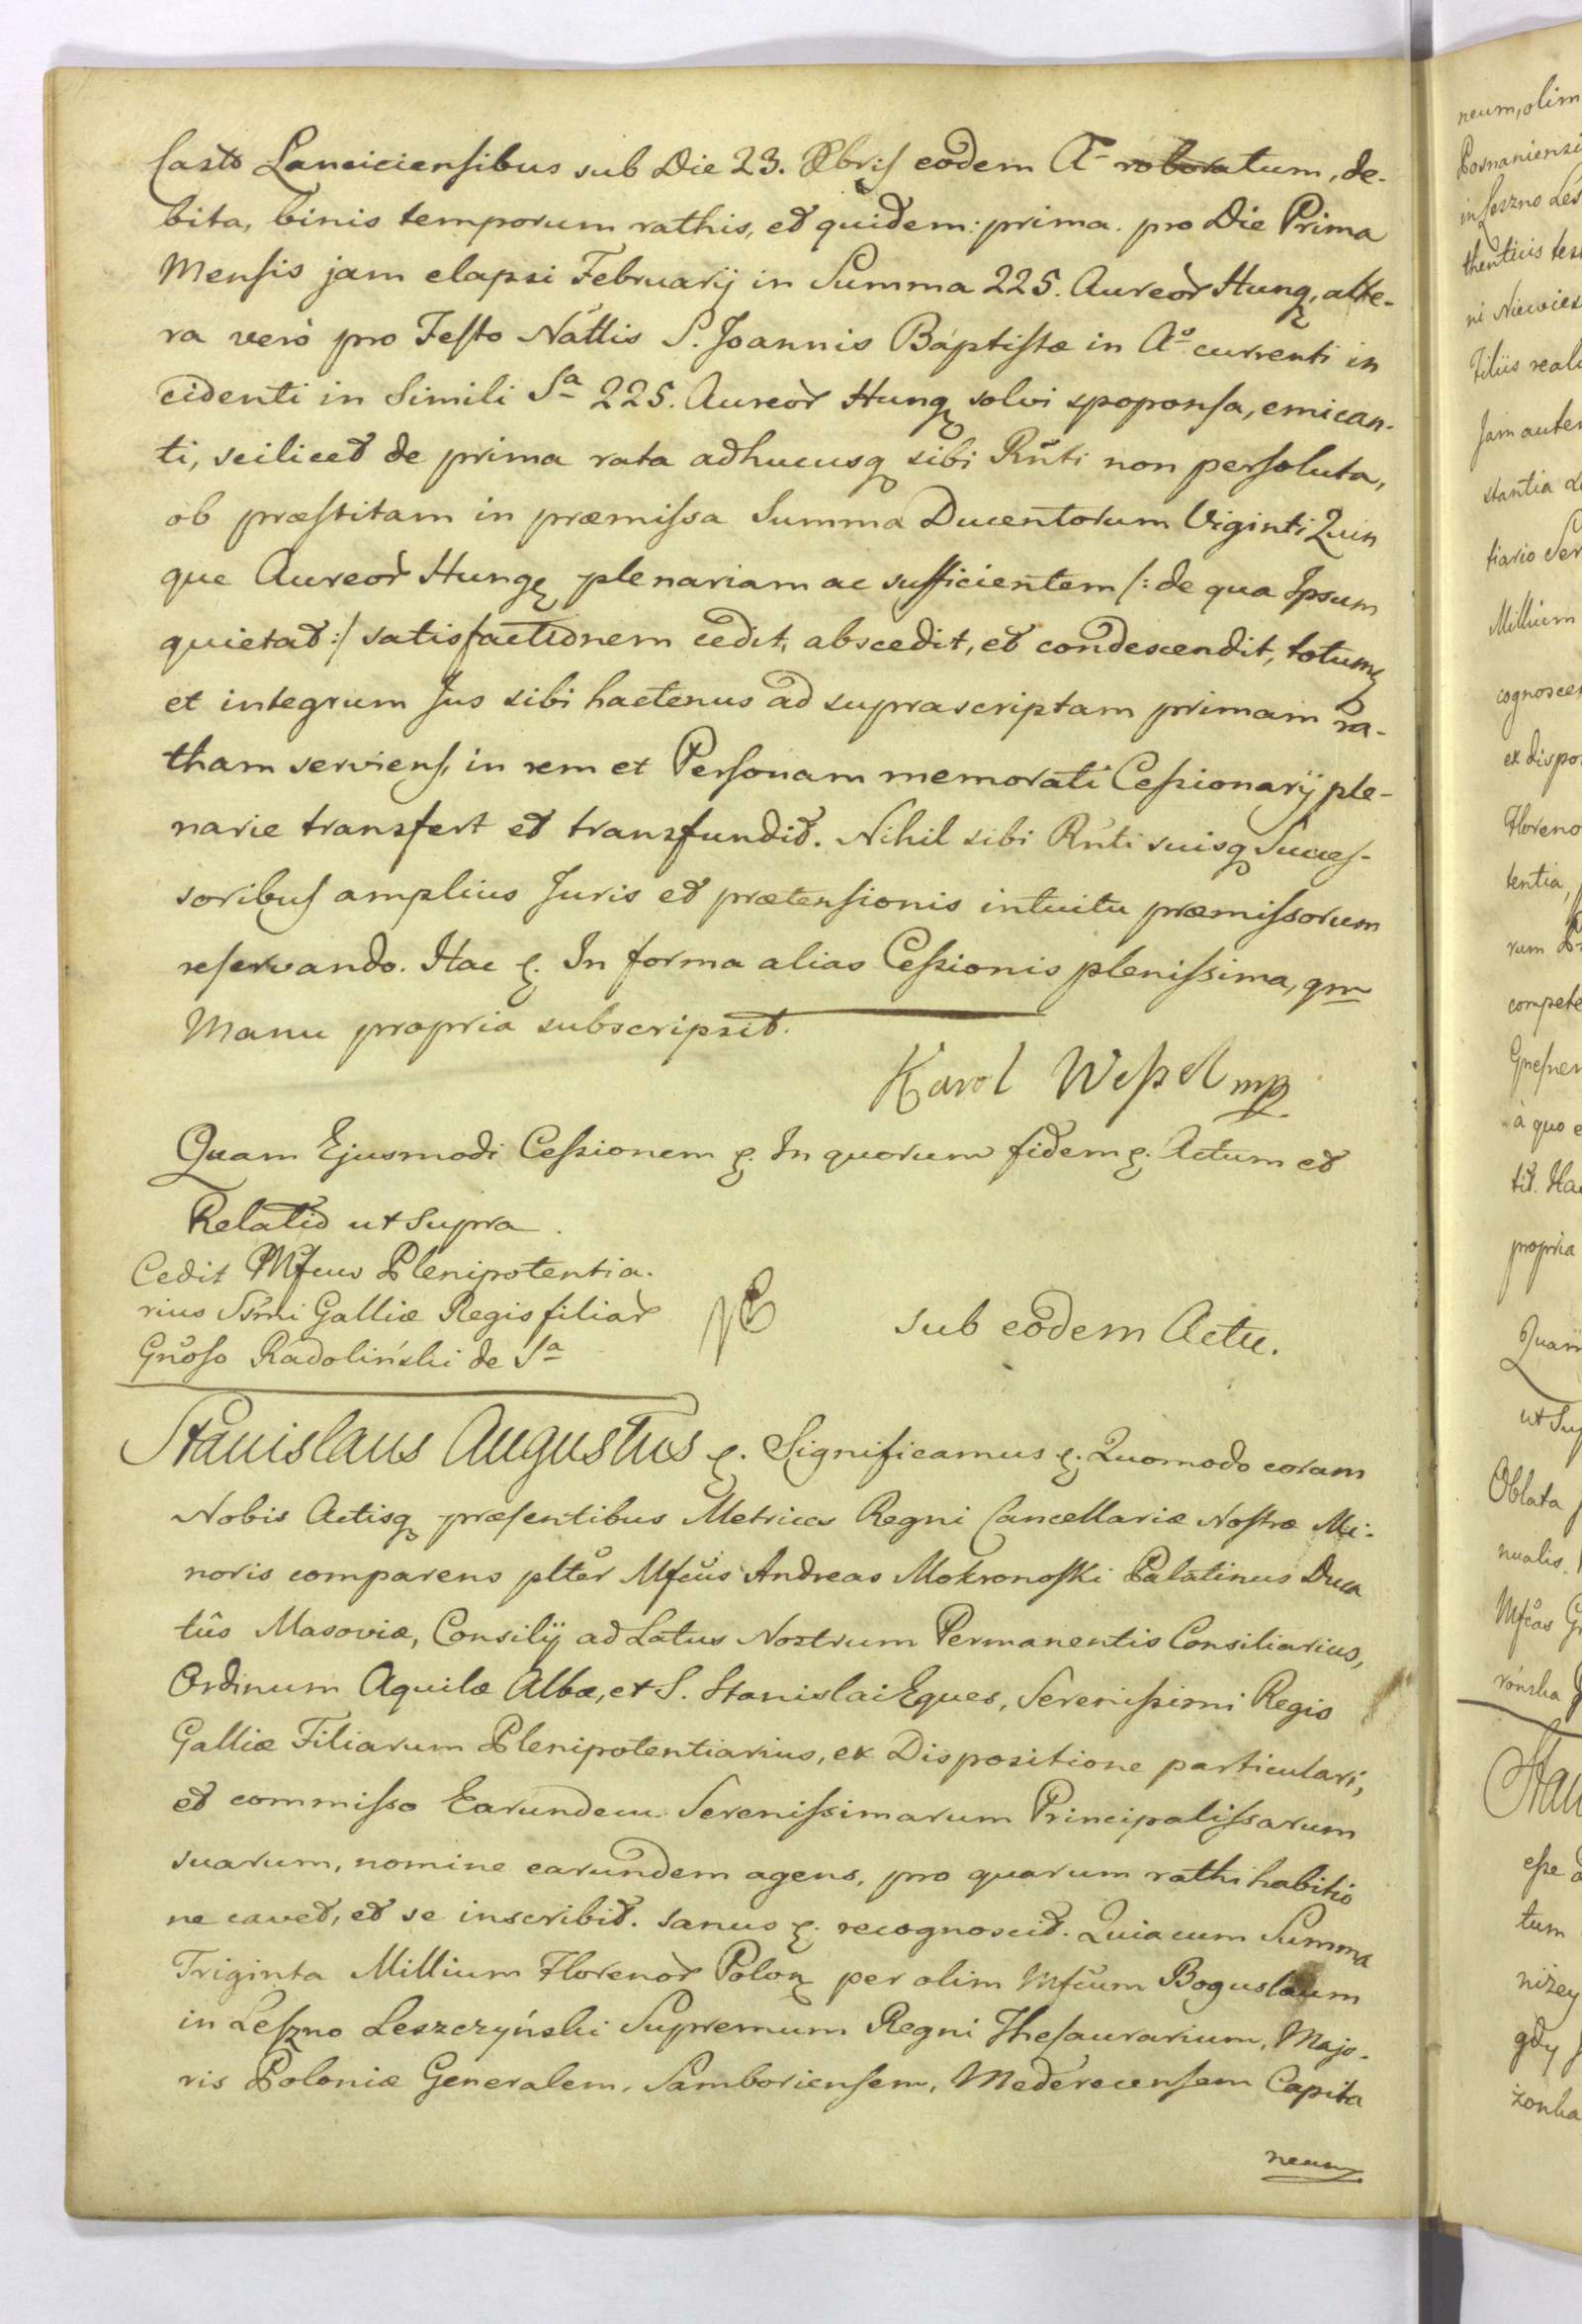 Casto Lanciciensibus sub Die 23. Xbris eodem Aº roboratum, de-
bita, binis temporum rathis, et quidem: prima. pro Die Prima
Mensis jam elapsi Februarij in Summa 225. Aureor Hung, alte-
ra vero pro Festo Nattis S. Joannis Baptistæ in Aº currenti in
cidenti in Simili Sa 225. Aureor Hung solvi spoponsa, emican-
ti, scilicet de prima rata adhucusq sibi Rnti non persoluta,
ob præstitam in præmissa Summa Ducentorum Viginti Quin
que Aureor Hung plenariam ac sufficientem /: de qua Ipsum
quietat :/ satisfactionem cedit, abscedit, et condescendit, totumq
et integrum Jus sibi hactenus ad suprascriptam primam ra-
tham serviens, in rem et Personam memorati Cessionarij ple-
narie transfert et transfundit. Nihil sibi Rnti suisq Succes-
soribus amplius Juris et prætensionis intuitu præmissorum
reservando. Hac &. In forma alias Cessionis plenissima, qm
Manu propria subscripsit.
Karol Wessel mp
Quam Ejusmodi Cessionem &. In quorum fidem &. Actum et
Relatio ut Supra.
Cedit Mfcus Plenipotentia-
rius Ssmi Galliæ Regis filiar
Gnoso Radoliński de Sa
sub eodem Actu.
Stanislaus Augustus &. Significamus &. Quomodo coram
Nobis Actisq præsentibus Metrices Regni Cancellariæ Nostræ Mi-
noris comparens plter Mfcus Andreas Mokronoski Palatinus Duca
tûs Masoviæ, Consilij ad Latus Nostrum Permanentis Consiliarius,
Ordinum Aquilæ Albæ, et S. Stanislai Eques, Serenissimi Regis
Galliæ Filiarum Plenipotentiarius, ex Dispositione particulari,
et commisso Earundem Serenissimarum Principalissarum
suarum, nomine earundem agens, pro quarum rathihabitio
ne cavet, et se inscribit. sanus &. recognoscit. Quia cum Summa
Triginta Millium Florenor Polon per olim Mfcum Boguslaum
in Leszno Leszczyński Supremum Regni Thesaurarium, Majo-
ris Poloniæ Generalem, Samboriensem, Mederecensem Capita
neum
neum, olim
Posnaniensi
in Leszno Les
thenticis tes
ni Niewies
Filiis reali
Jam autem
stantia de
tiario Ser
Millium
cognoscen
ex dispo
Floreno
tentia,
rum
compete
Gnesnen
à quo e
tit. Hac
propria
Quam
ut Sup
Oblata
nualis.
Mfcas G
rońska
Stan
esse
tum
niżey
gdy
żonka